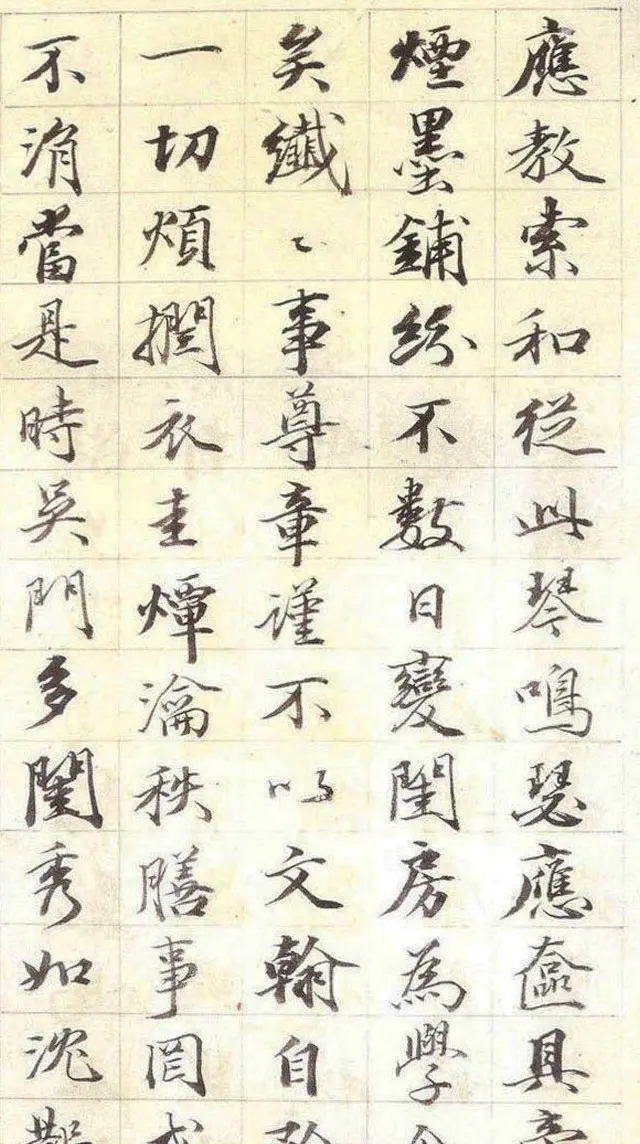 應教索和從此琴鳴瑟應奩具
煙墨鋪紛不數日變閨房為學
矣纖〻事尊章謹不以文翰自
一切煩撋衣圭燂瀹秩膳事罔
不涓當是時吳門多閨秀如沈